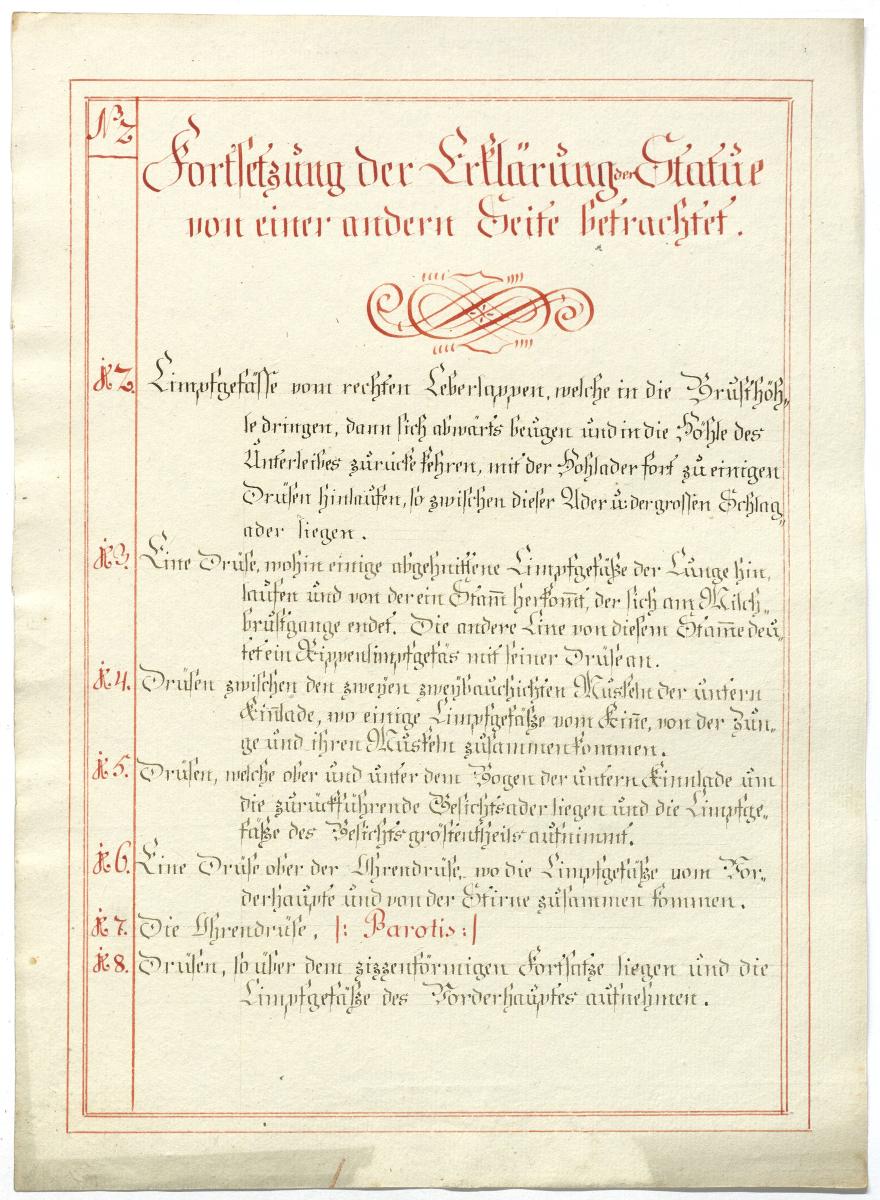 N 3/2
Fortsetzung der Erklärung der Statue
von einer andern Seite betrachtet.
k 2. Limpfgefässe vom rechten Leberlappen, welche in die Brusthöh„
le dringen, dann sich abwärts beugen und in die Höhle des
Unterleibes zurücke kehren, mit der Hohlader fort zu einigen
Drüsen hinlaufen, so zwischen dieser Ader u: der grossen Schlag„
ader liegen.
k 3. Eine Drüse, wohin einige abgehnittene Limpfgefäße der Lunge hin„
laufen und von der ein Stam̅ herkom̅t, der sich am Milch„
brustgange endet. Die andere Line von diesem Stam̅e deu„
tet ein Rippenlimpfgefäs mit seiner Drüse an.
k 4. Drüsen zwischen den zweyen zweybauchichten Muskeln der untern
Kin̅lade, wo einige Limpfgefäße vom Kin̅e, von der Zun„
ge und ihren Muskeln zusammen kommen.
k 5. Drüsen, welche ober und unter dem Bogen der untern Kinnlade um
die zurückführende Gesichtsader liegen und die Limpfge„
fäße des Gesichts gröstentheils aufnimmt.
k 6. Eine Drüse ober der Ohrendrüse, wo die Limpfgefäße vom Vor„
derhaupte und von der Stirne zusammen kommen.
k 7. Die Ohrendrüse, |: Parotis :|
k 8. Drüsen, so über dem zizzenförmigen Fortsatze liegen und die
Limpfgefäße des Vorderhauptes aufnehmen.